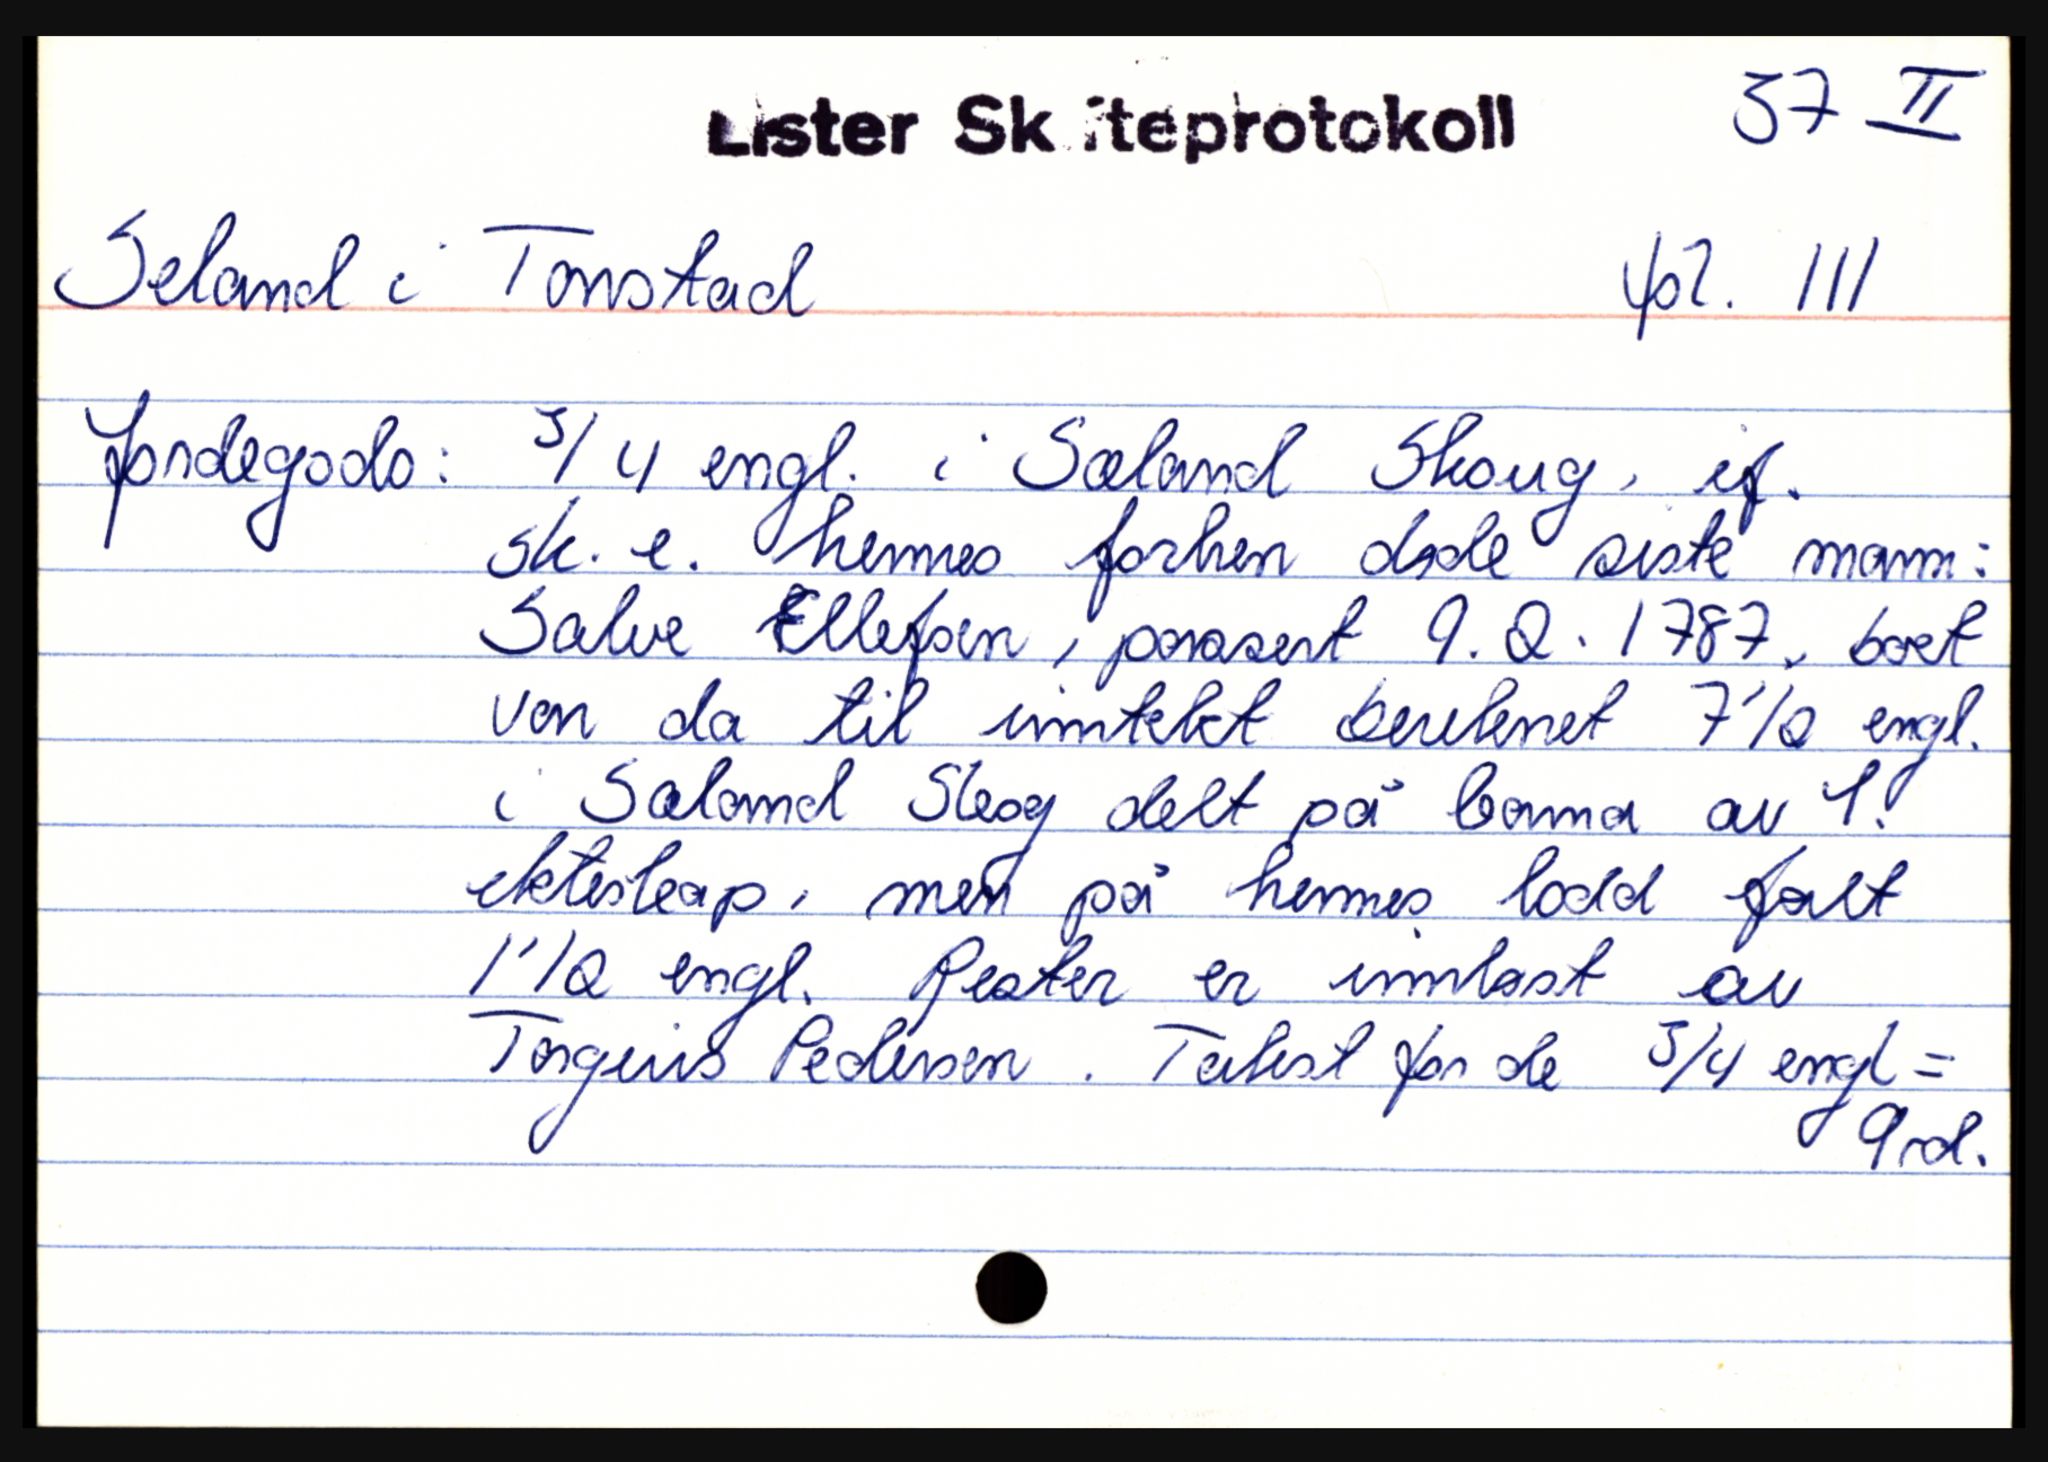 Lister Skifteprotokoll
37 II
Seland i Tonstad
fol. 111
Jordegods: 3/4 engl. i Sæland Skoug, if.
sk. e. hennes forhen døde siste mann:
Salve Ellefsen, passert 9.2.1787, boet
var da til inntekt beregnet 7 1/2 engl.
i Sæland Skog delt på barna av 1.
ekteskap, men på hennes lodd falt
1 1/2 engl. Resten er innløst av
Torgeirs Pedersen. Takst for de 3/4 engl =
9 rd.